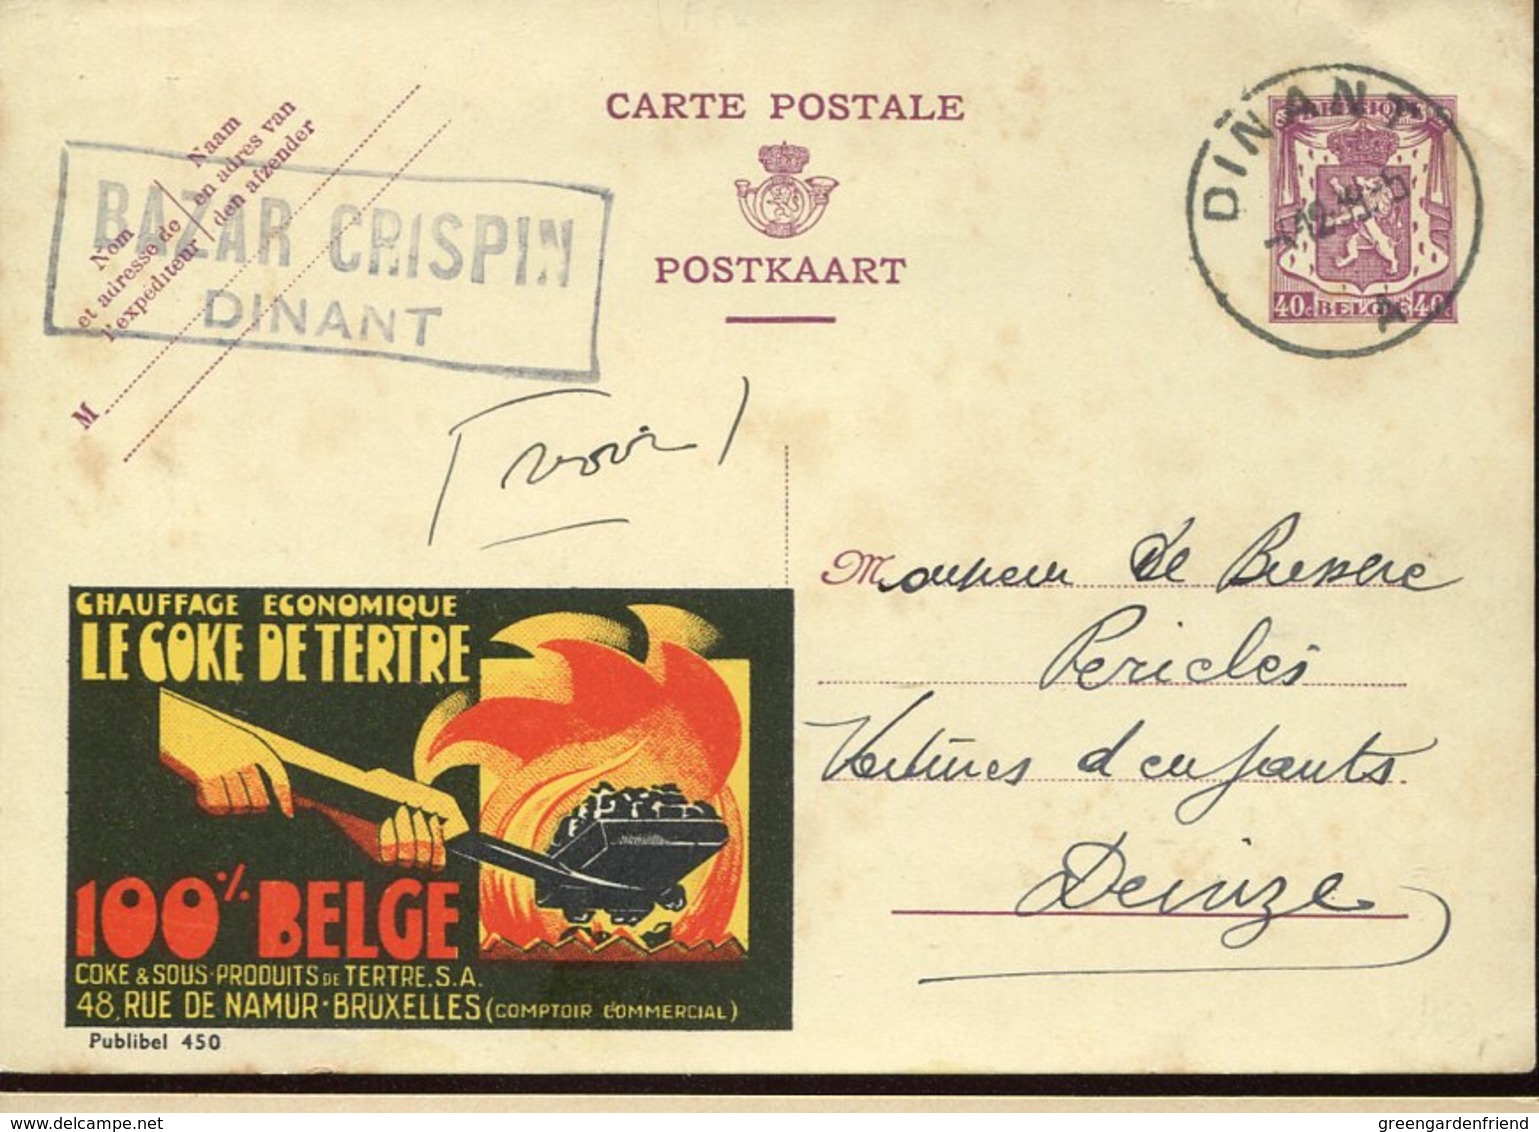 CARTE POSTALE
POSTKAART
Naam
en adres van
den afzender
Nom
et adresse de
l'expéditeur
M
BAZAR CRISPIN
DINANT
DINANT
A
BELGIQUE
40c BELGIE 40c
Monsieur De Bussere
Periclès
Voitures d'enfants
Deinze
CHAUFFAGE ECONOMIQUE
LE COKE DE TERTRE
100% BELGE
COKE & SOUS-PRODUITS DE TERTRE. S.A.
48, RUE DE NAMUR-BRUXELLES (COMPTOIR COMMERCIAL)
Publibel 450
greengardenfriend